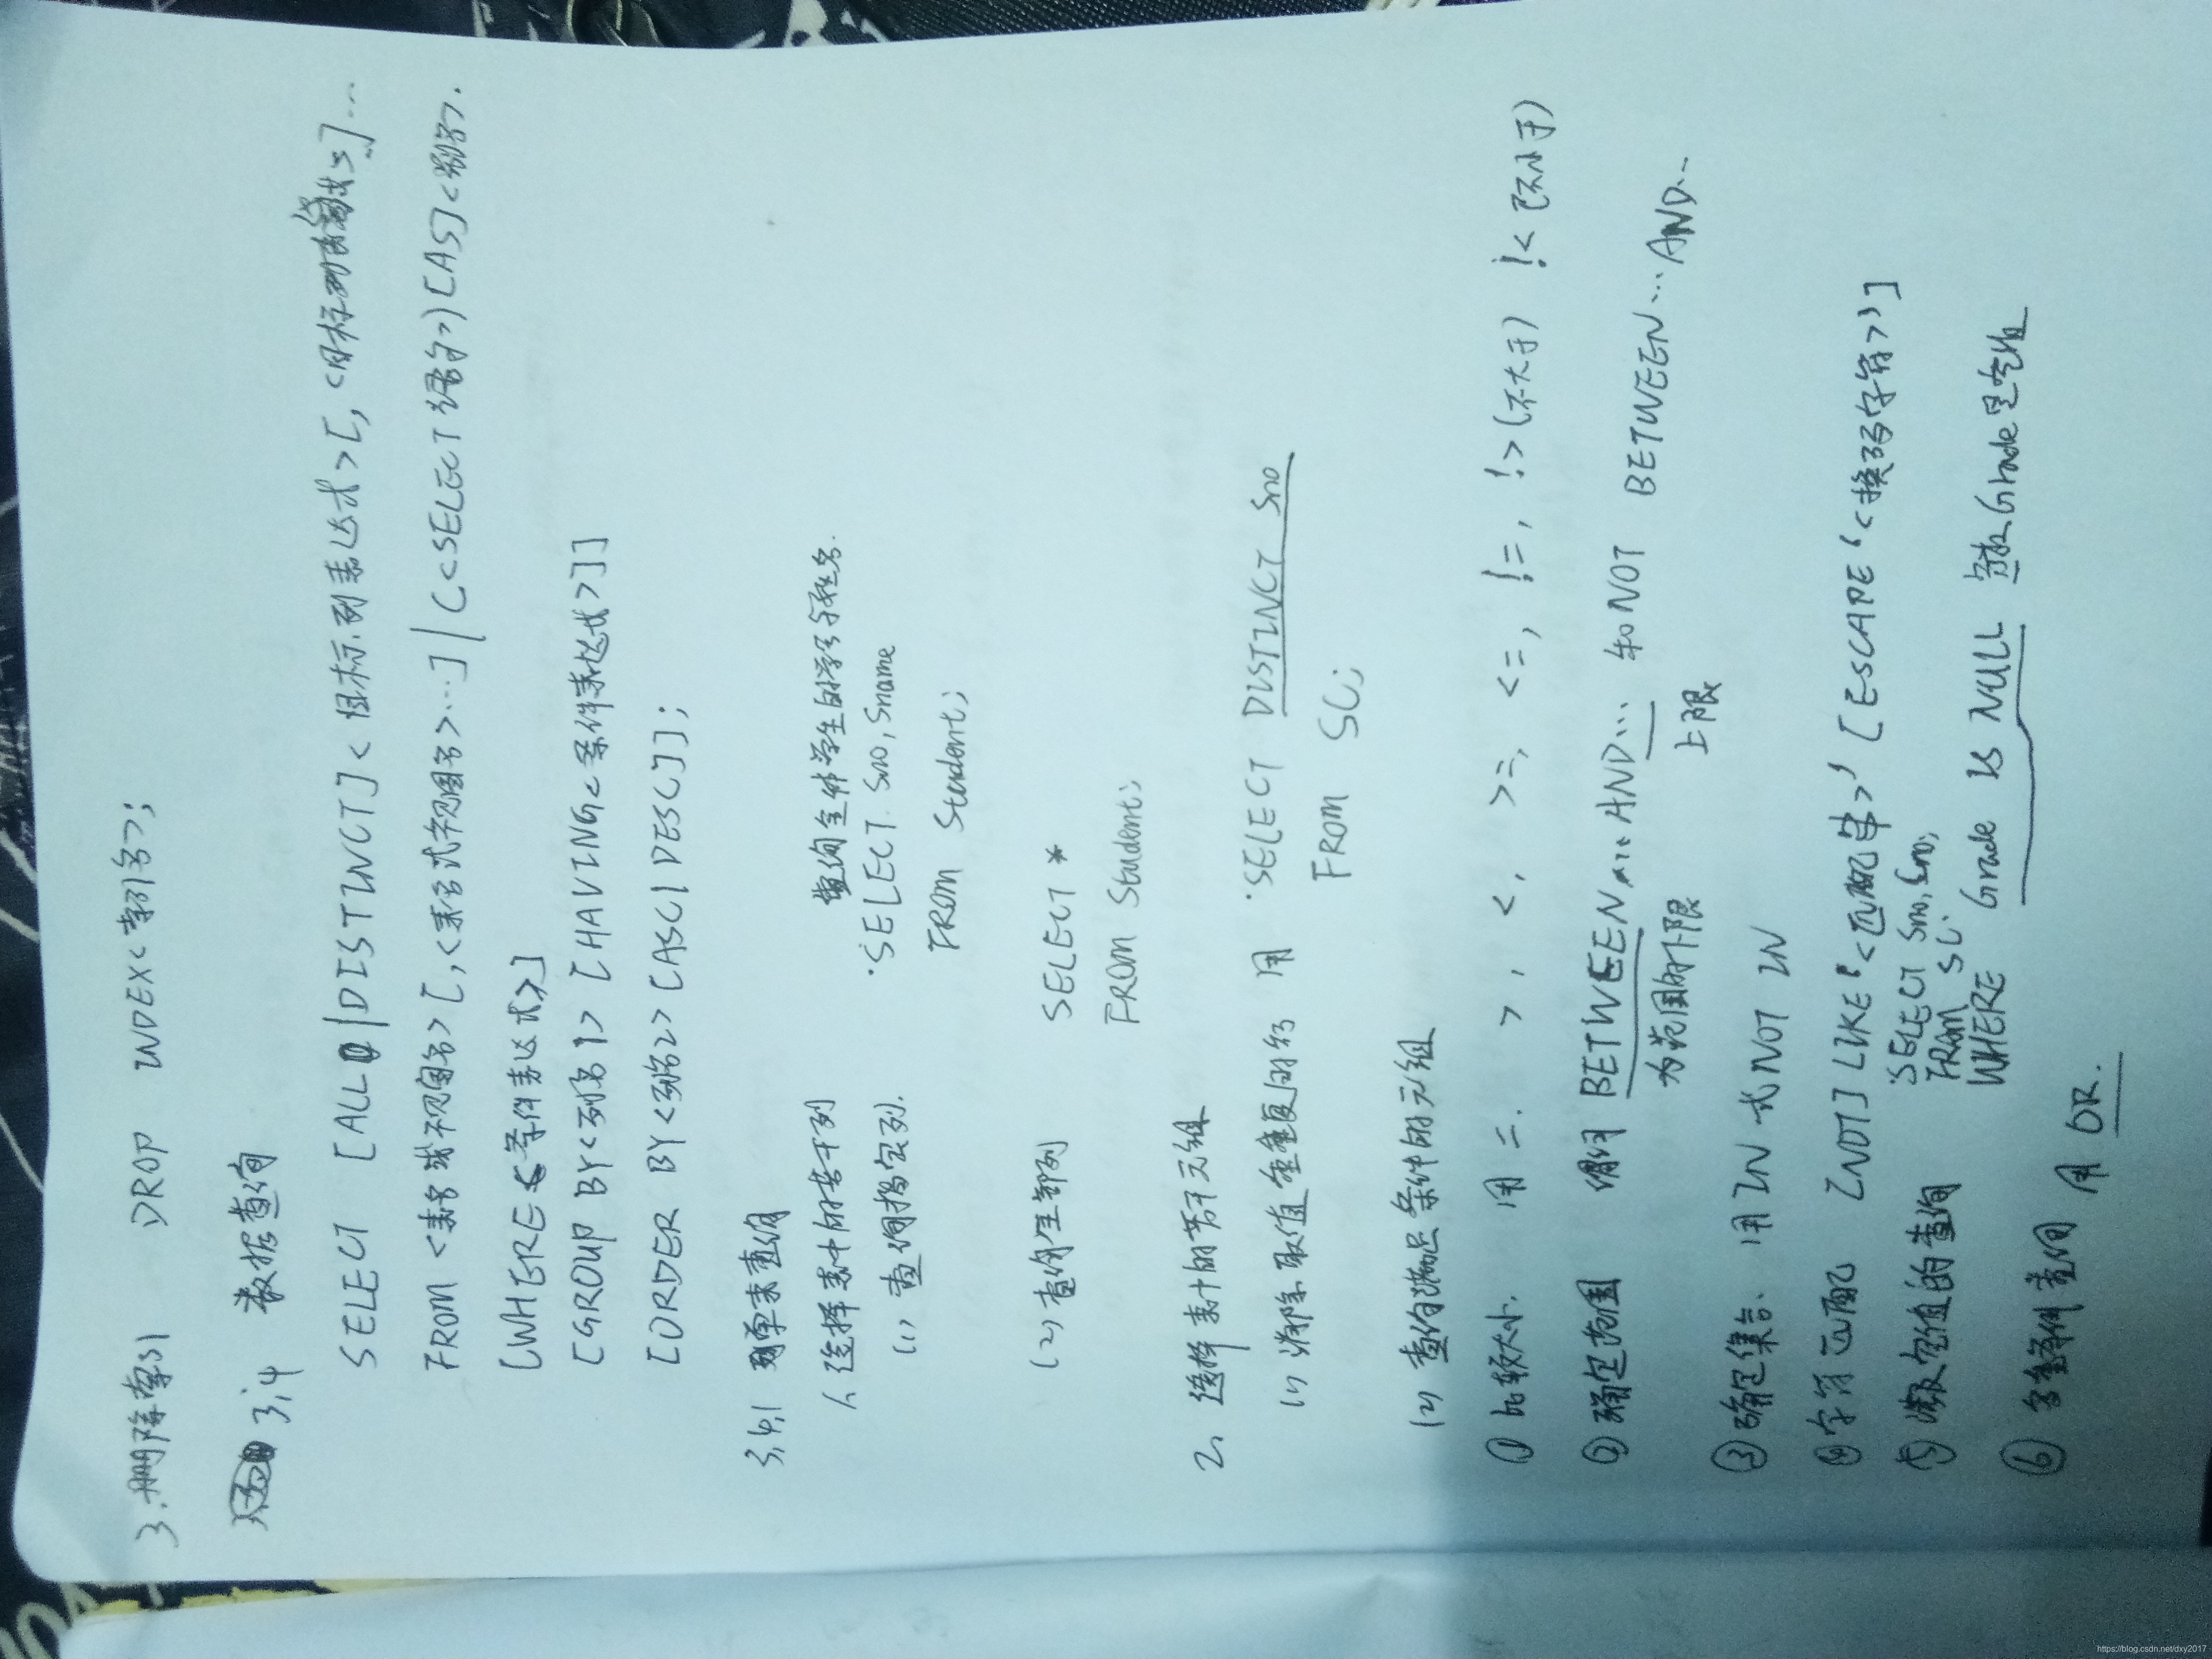 3.删除索引 DROP INDEX<索引名>;
3.4 数据查询
SELECT [ALL|DISTINCT]<目标列表达式>[,<目标列表达式>]...
FROM <表名或视图名>[,<表名或视图名>...]|(<SELECT语句>)[AS]<别名>.
[WHERE<条件表达式>]
[GROUP BY<列名1>[HAVING<条件表达式>]]
[ORDER BY<列名2>[ASC|DESC]];
3.4.1 单表查询
1、选择表中的若干列 查询全体学生的学号与姓名.
(1) 查询指定列. ·SELECT Sno, Sname
FROM Student;
(2) 查询全部列 SELECT *
FROM Student;
2. 选择表中的若干元组
(1) 消除取值重复的行 用 ·SELECT DISTINCT Sno
FROM SC;
(2) 查询满足条件的元组
① 比较大小. 用 =. >, <, >=, <=, !=, !>(不大于) !<(不小于)
② 确定范围 谓词 BETWEEN...AND... 和NOT BETWEEN...AND...
为范围的下限 上限
③ 确定集合. 用IN 或NOT IN
④ 字符匹配 [NOT] LIKE '<匹配串>' [ESCAPE '<换码字符>']
⑤ 涉及空值的查询 ·SELECT Sno, Cno,
FROM SC.
WHERE Grade IS NULL Grade是空值
⑥ 多重条件查询 用 OR.
https://blog.csdn.net/dxy2017